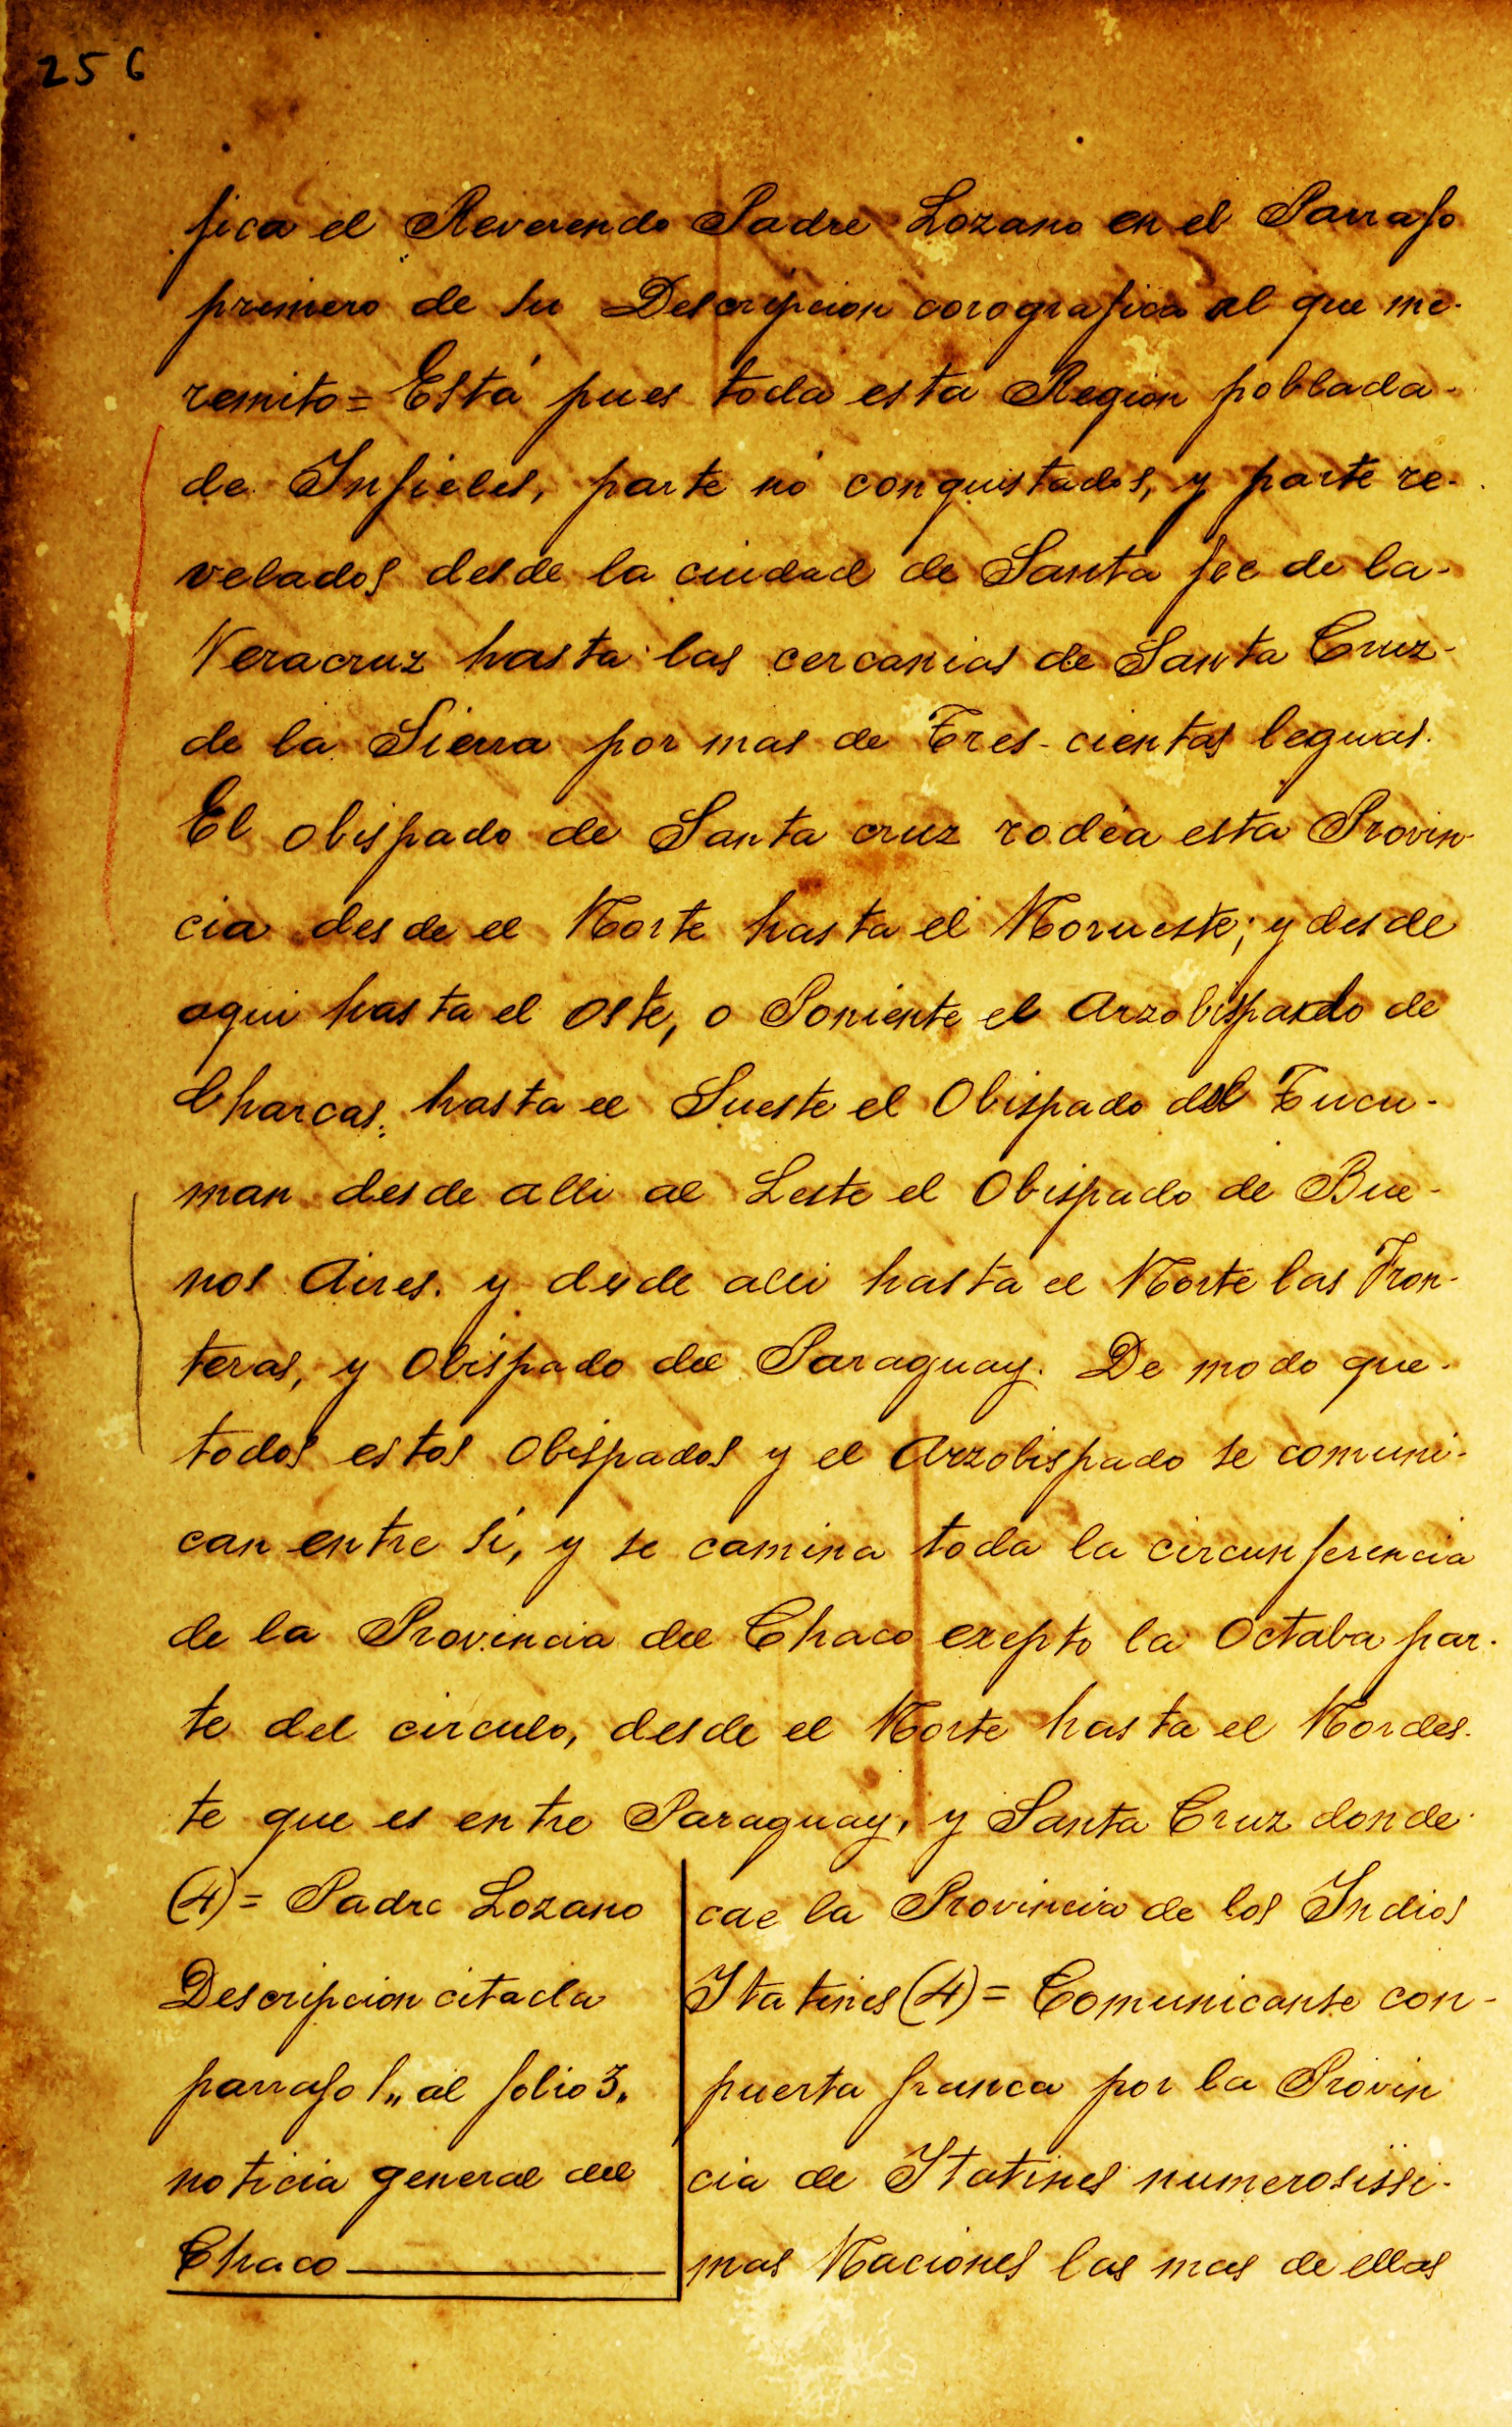 256
fica el Reverendo Padre Lozano en el Parrafo
primero de su Descripcion corografica al que me-
remito= Está pues toda esta Region poblada-
de Infieles, parte nó conquistados, y parte re-
velados desde la ciudad de Santa fee de la-
Veracruz hasta las cercanias de Santa Cruz-
de la Sierra por mas de Tres-cientas leguas.
El obispado de Santa cruz rodéa esta Provin-
cia desde el Norte hasta el Norueste; y desde
aqui hasta el Oste, o Poniente el Arzobispado de
Charcas; hasta el Sueste el Obispado del Tucu-
man desde alli al Leste el Obispado de Bue-
nos Aires. y desde alli hasta el Norte las Fron-
teras, y Obispado del Paraguay. De modo que-
todos estos Obispados y el Arzobispado se comuni-
can entre sí, y se camina toda la circunferencia
de la Provincia del Chaco exepto la Octaba par-
te del circulo, desde el Norte hasta el Nordes-
te que es entre Paraguay, y Santa Cruz donde-
cae la Provincia de los Indios
Itatines (4)= Comunicanse con-
puerta franca por la Provin
cia de Itatines numerosissi-
mas Naciones las mas de ellas
(4)= Padre Lozano
Descripcion citada
parrafo 1,, al folio 3,,
noticia general del
Chaco